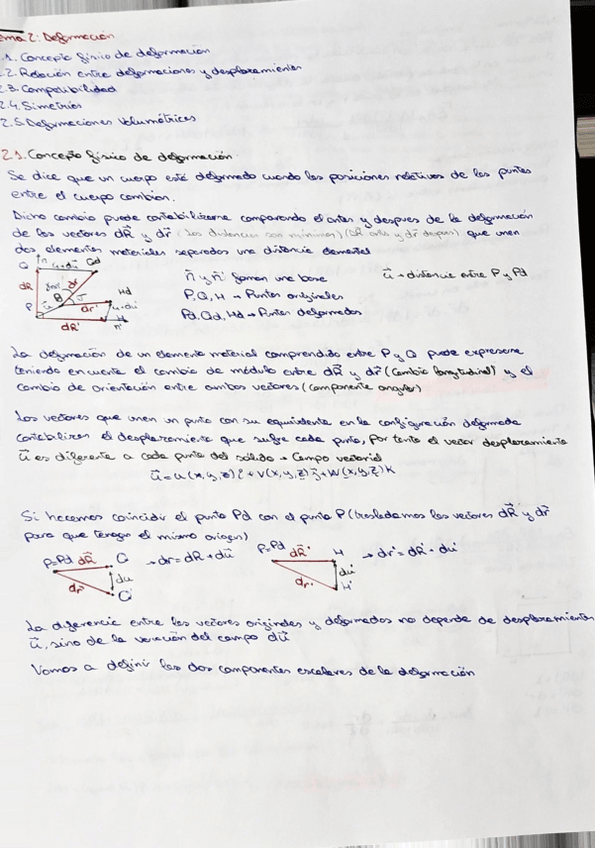 ema 2: Deformación
.1. Concepto físico de deformación
.2. Relación entre deformaciones y desplazamientos
2.3. Compatibilidad
2.4. Simetrías
2.5. Deformaciones Volumétricas
2.1. Concepto físico de deformación.
Se dice que un cuerpo está deformado cuando las posiciones relativas de los puntos
entre el cuerpo cambian.
Dicho cambio puede contabilizarse comparando el antes y despues de la deformación
de los vectores dR⃗ y dr⃗ (Las distancias son mínimas) (dR antes y dr⃗ después) que unen
dos elementos materiales separados una distancia elemental
Q n u+du Qd
n⃗ y n⃗' forman una base
u⃗ → distancia entre P y Pd
dR dr Hd
P, Q, H → Puntos originales
P u θ dr' u+du'
Pd, Qd, Hd → Puntos deformados
dR' H n'
La deformación de un elemento material comprendido entre P y Q puede expresarse
teniendo en cuenta el cambio de módulo entre dR⃗ y dr⃗ (Cambio longitudinal) y el
cambio de orientación entre ambos vectores (componente angular)
Los vectores que unen un punto con su equivalente en la configuración deformada
contabilizan el desplazamiento que sufre cada punto, Por tanto el vector desplazamiento
u⃗ es diferente a cada punto del sólido → Campo vectorial
u⃗ = u(x,y,z)i⃗ + v(x,y,z)j⃗ + w(x,y,z)k
Si hacemos coincidir el punto Pd con el punto P (trasladamos los vectores dR⃗ y dr⃗
para que tengan el mismo origen)
P=Pd dR⃗ Q → dr = dR + du⃗
P=Pd dR⃗' H → dr' = dR' + du'
dr du Q'
dr' du' H'
La diferencia entre los vectores originales y deformados no depende de desplazamiento
u⃗, sino de la variación del campo du⃗
Vamos a definir las dos componentes escalares de la deformación